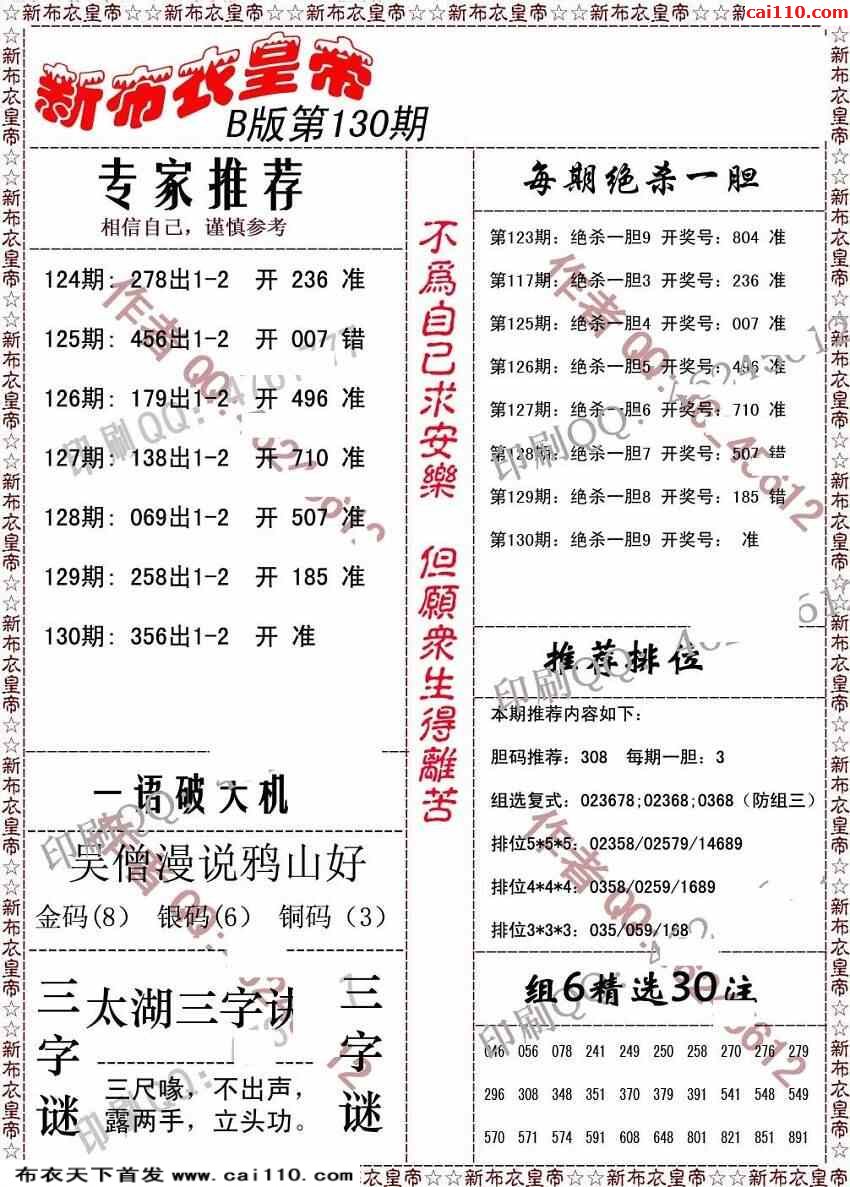 ☆☆新布衣皇帝☆☆新布衣皇帝☆☆新布衣皇帝☆☆新布衣皇帝☆☆新布衣皇帝☆☆新
cai110.com
新布衣皇帝
B版第130期
专家推荐
相信自己，谨慎参考
124期: 278出1-2 开 236 准
125期: 456出1-2 开 007 错
126期: 179出1-2 开 496 准
127期: 138出1-2 开 710 准
128期: 069出1-2 开 507 准
129期: 258出1-2 开 185 准
130期: 356出1-2 开 准
一语破天机
吴僧漫说鸦山好
金码(8) 银码(6) 铜码（3）
三字谜
太湖三字诀
三尺喙，不出声，
露两手，立头功。
三字谜
不爲自己求安樂 但願衆生得離苦
每期绝杀一胆
第123期: 绝杀一胆9 开奖号: 804 准
第117期: 绝杀一胆3 开奖号: 236 准
第125期: 绝杀一胆4 开奖号: 007 准
第126期: 绝杀一胆5 开奖号: 496 准
第127期: 绝杀一胆6 开奖号: 710 准
第128期: 绝杀一胆7 开奖号: 507 错
第129期: 绝杀一胆8 开奖号: 185 错
第130期: 绝杀一胆9 开奖号: 准
推荐排位
本期推荐内容如下:
胆码推荐: 308 每期一胆: 3
组选复式: 023678;02368;0368（防组三）
排位5*5*5: 02358/02579/14689
排位4*4*4: 0358/0259/1689
排位3*3*3: 035/059/168
组6精选30注
046 056 078 241 249 250 258 270 276 279
296 308 348 351 370 379 391 541 548 549
570 571 574 591 608 648 801 821 851 891
布衣天下首发 www.cai110.com
衣皇帝☆☆新布衣皇帝☆☆新布衣皇帝☆☆新布衣皇帝☆